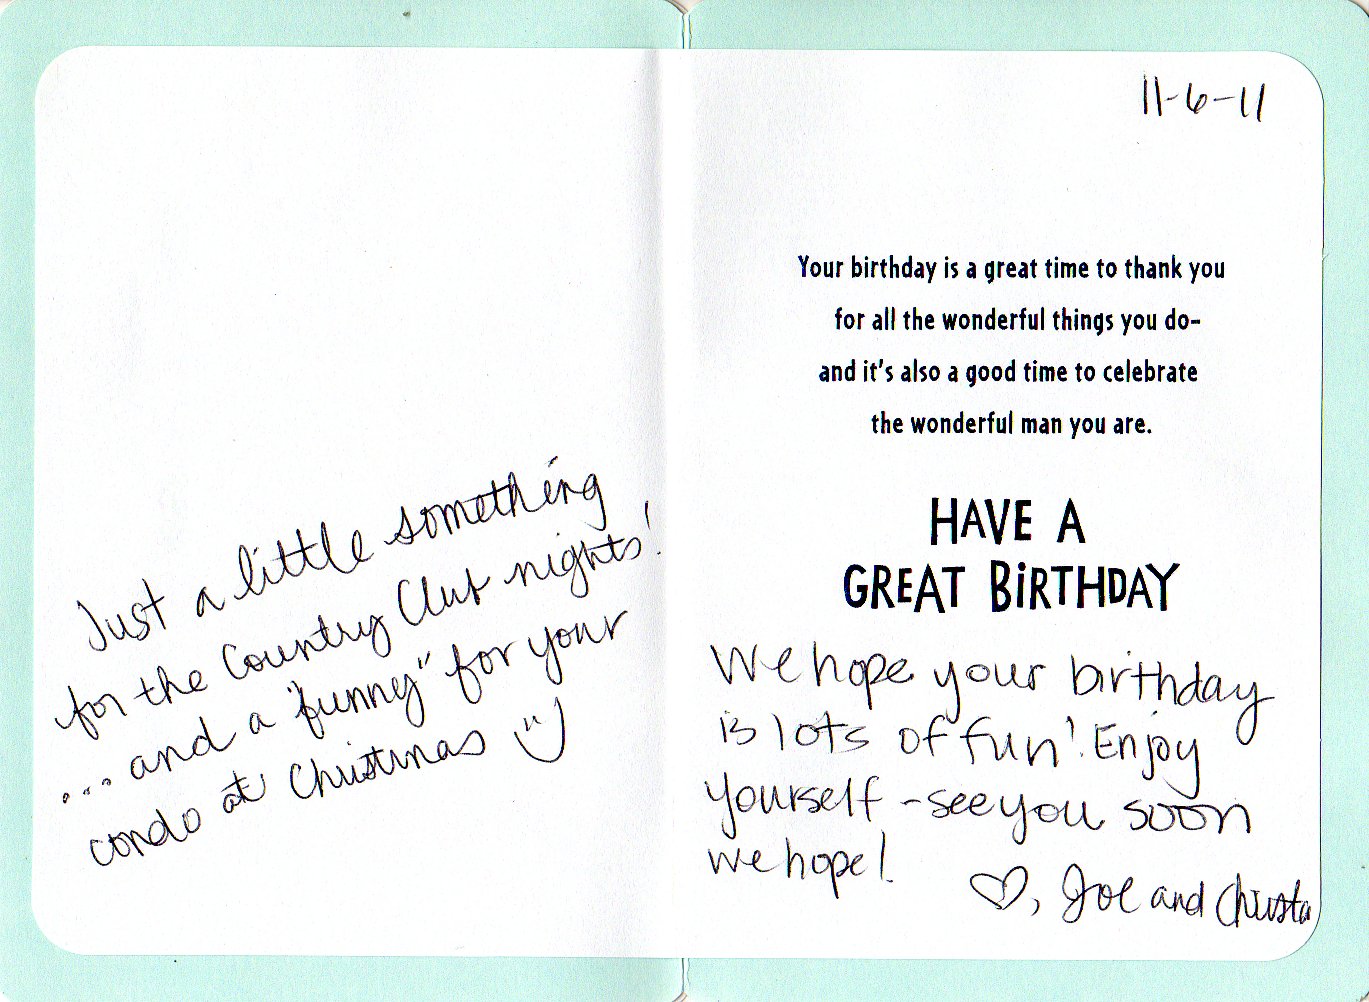 Just a little something
for the Country Club nights!
... and a "funny" for your
condo at Christmas
11-6-11
Your birthday is a great time to thank you
for all the wonderful things you do-
and it's also a good time to celebrate
the wonderful man you are.
HAVE A
GREAT BIRTHDAY
We hope your birthday
is lots of fun! Enjoy
yourself - see you soon
we hope!
♡, Joe and Christa